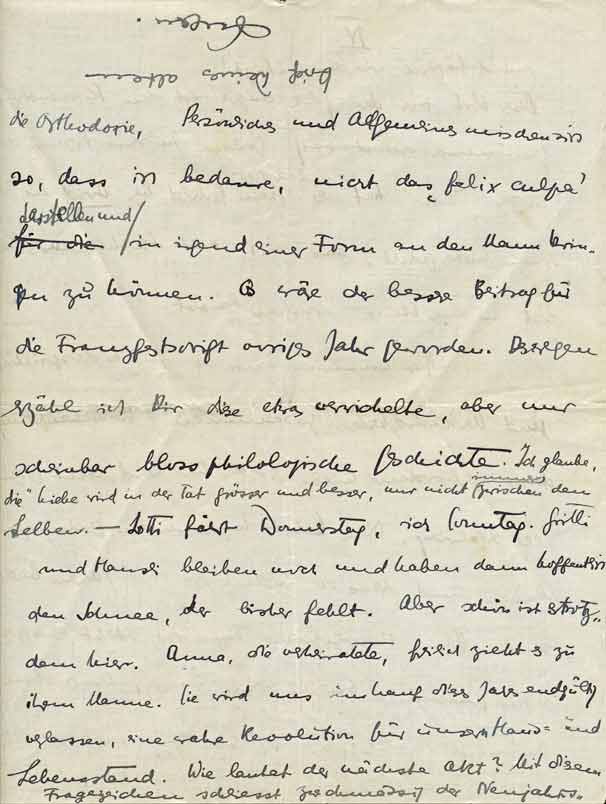 die Orthodoxie, Persönliches und Allgemeines mischen sich
so, dass ich bedaure, nicht das „felix culpa“
darstellen und
für die / in irgend einer Form an den Mann brin-
gen zu können. Es wäre der bessre Beitrag für
die Franzfestschrift voriges Jahr geworden. Deswegen
erzähl ich Dir diese etwas verwickelte, aber nur
scheinbar bloss philologische Geschichte. Ich glaube,
immer
die Liebe wird in der Tat grösser und besser, nur nicht zwischen den
Selben. — Lotti fährt Donnerstag, ich Sonntag. Gritli
und Hansi bleiben noch und haben dann hoffentlich
den Schnee, der bisher fehlt. Aber schön ists trotz-
dem hier. Anna, die verheiratete, freilich zieht es zu
ihrem Manne. Sie wird uns im Lauf dieses Jahres endgültig
verlassen, eine wahre Revolution für unsern Haus= und
Lebensstand. Wie lautet der nächste Akt? Mit diesem
Fragezeichen schliesst zweckmässig der Neujahrs-
brief Deines alten
Eugen.